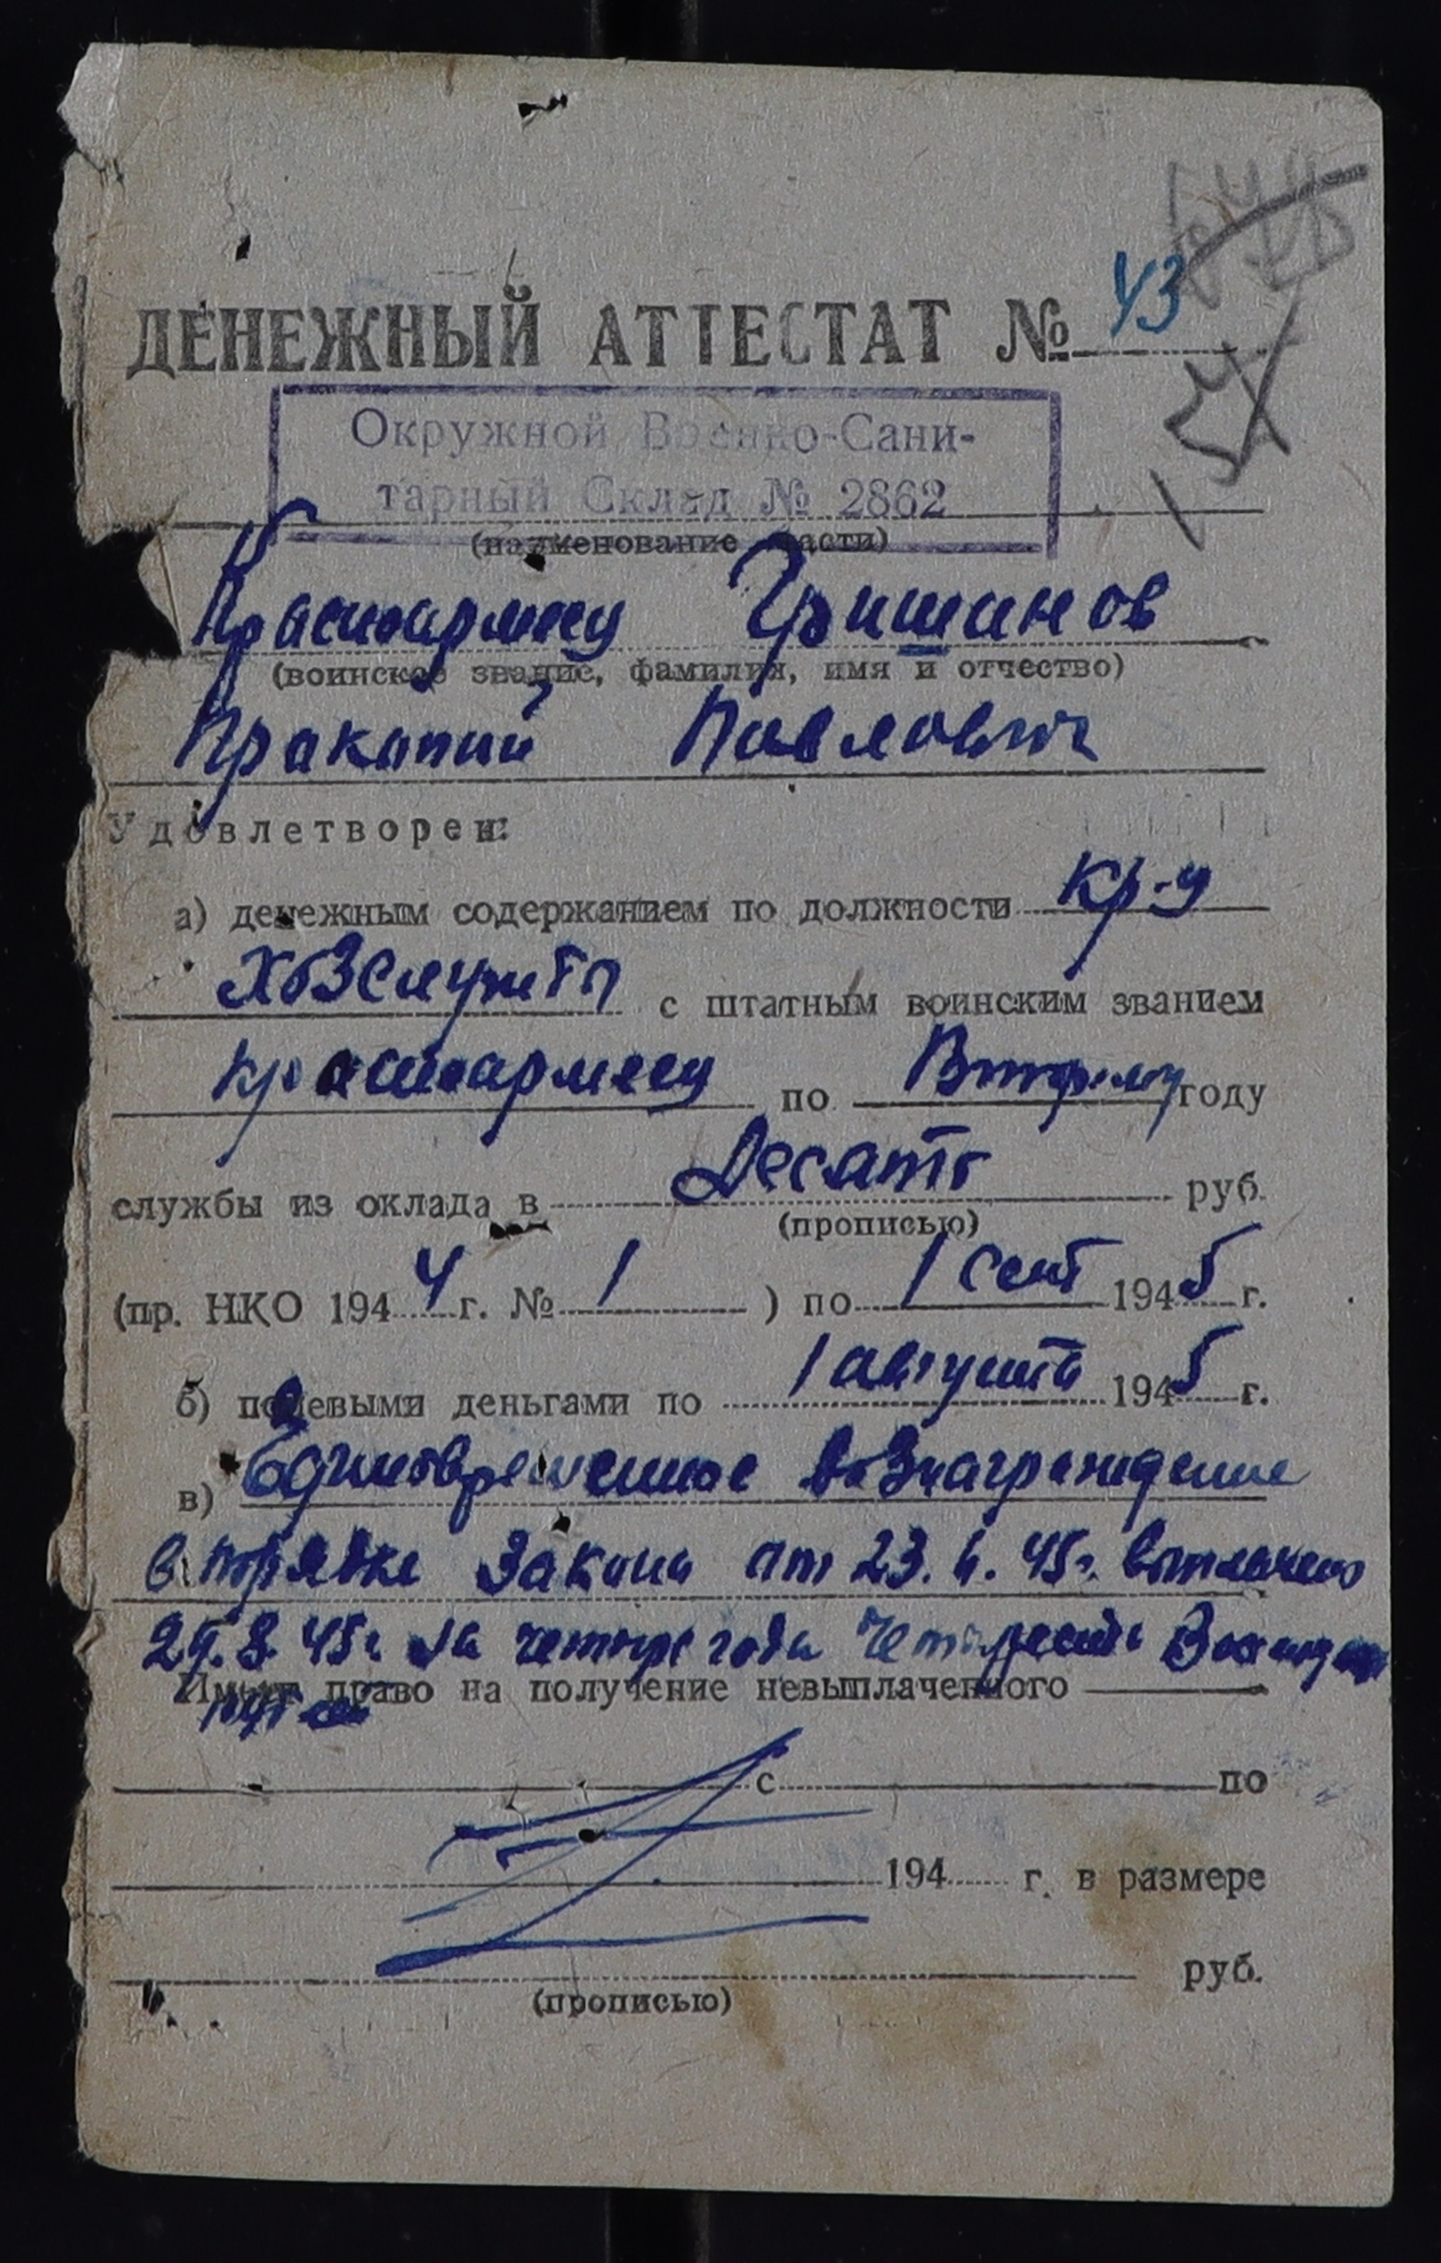 ДЕНЕЖНЫЙ АТТЕСТАТ № 43
Окружной Военно-Сани-
тарный Склад № 2862
(наименование части)
Красноармеец Гришанов
(воинское звание, фамилия, имя и отчество)
Пракопий Павлович
Удовлетворен:
а) денежным содержанием по должности кр-ц
хозслужбы с штатным воинским званием
красноармеец по Второму году
службы из оклада в Десать руб.
(прописью)
(пр. НКО 1944 г. № 1 ) по 1 сент 1945 г.
б) полевыми деньгами по 1 августа 1945 г.
в) Единовременное вознаграждение
в порядке Закона от 23.6.45г. выплачено
29.8.45г. за четыре года
Имеет право на получение невыплаченного
с по
194 г. в размере
руб.
(прописью)